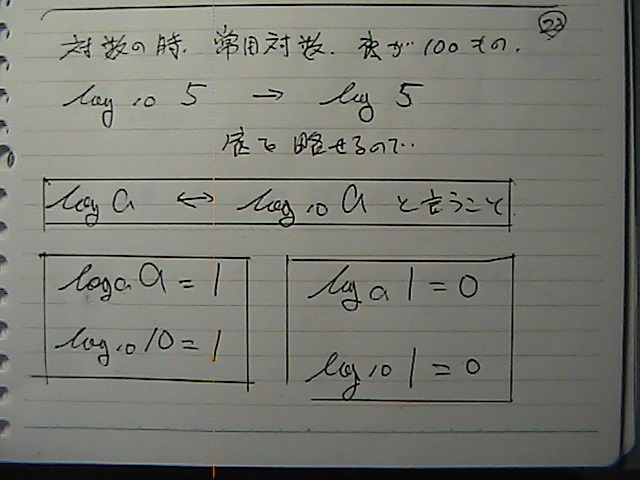 22
対数の時、常用対数、底が10のもの、
log₁₀ 5 → log 5
底を略せるので‥
log a ↔ log₁₀ a と言うこと
logₐ a = 1
log₁₀ 10 = 1
logₐ 1 = 0
log₁₀ 1 = 0